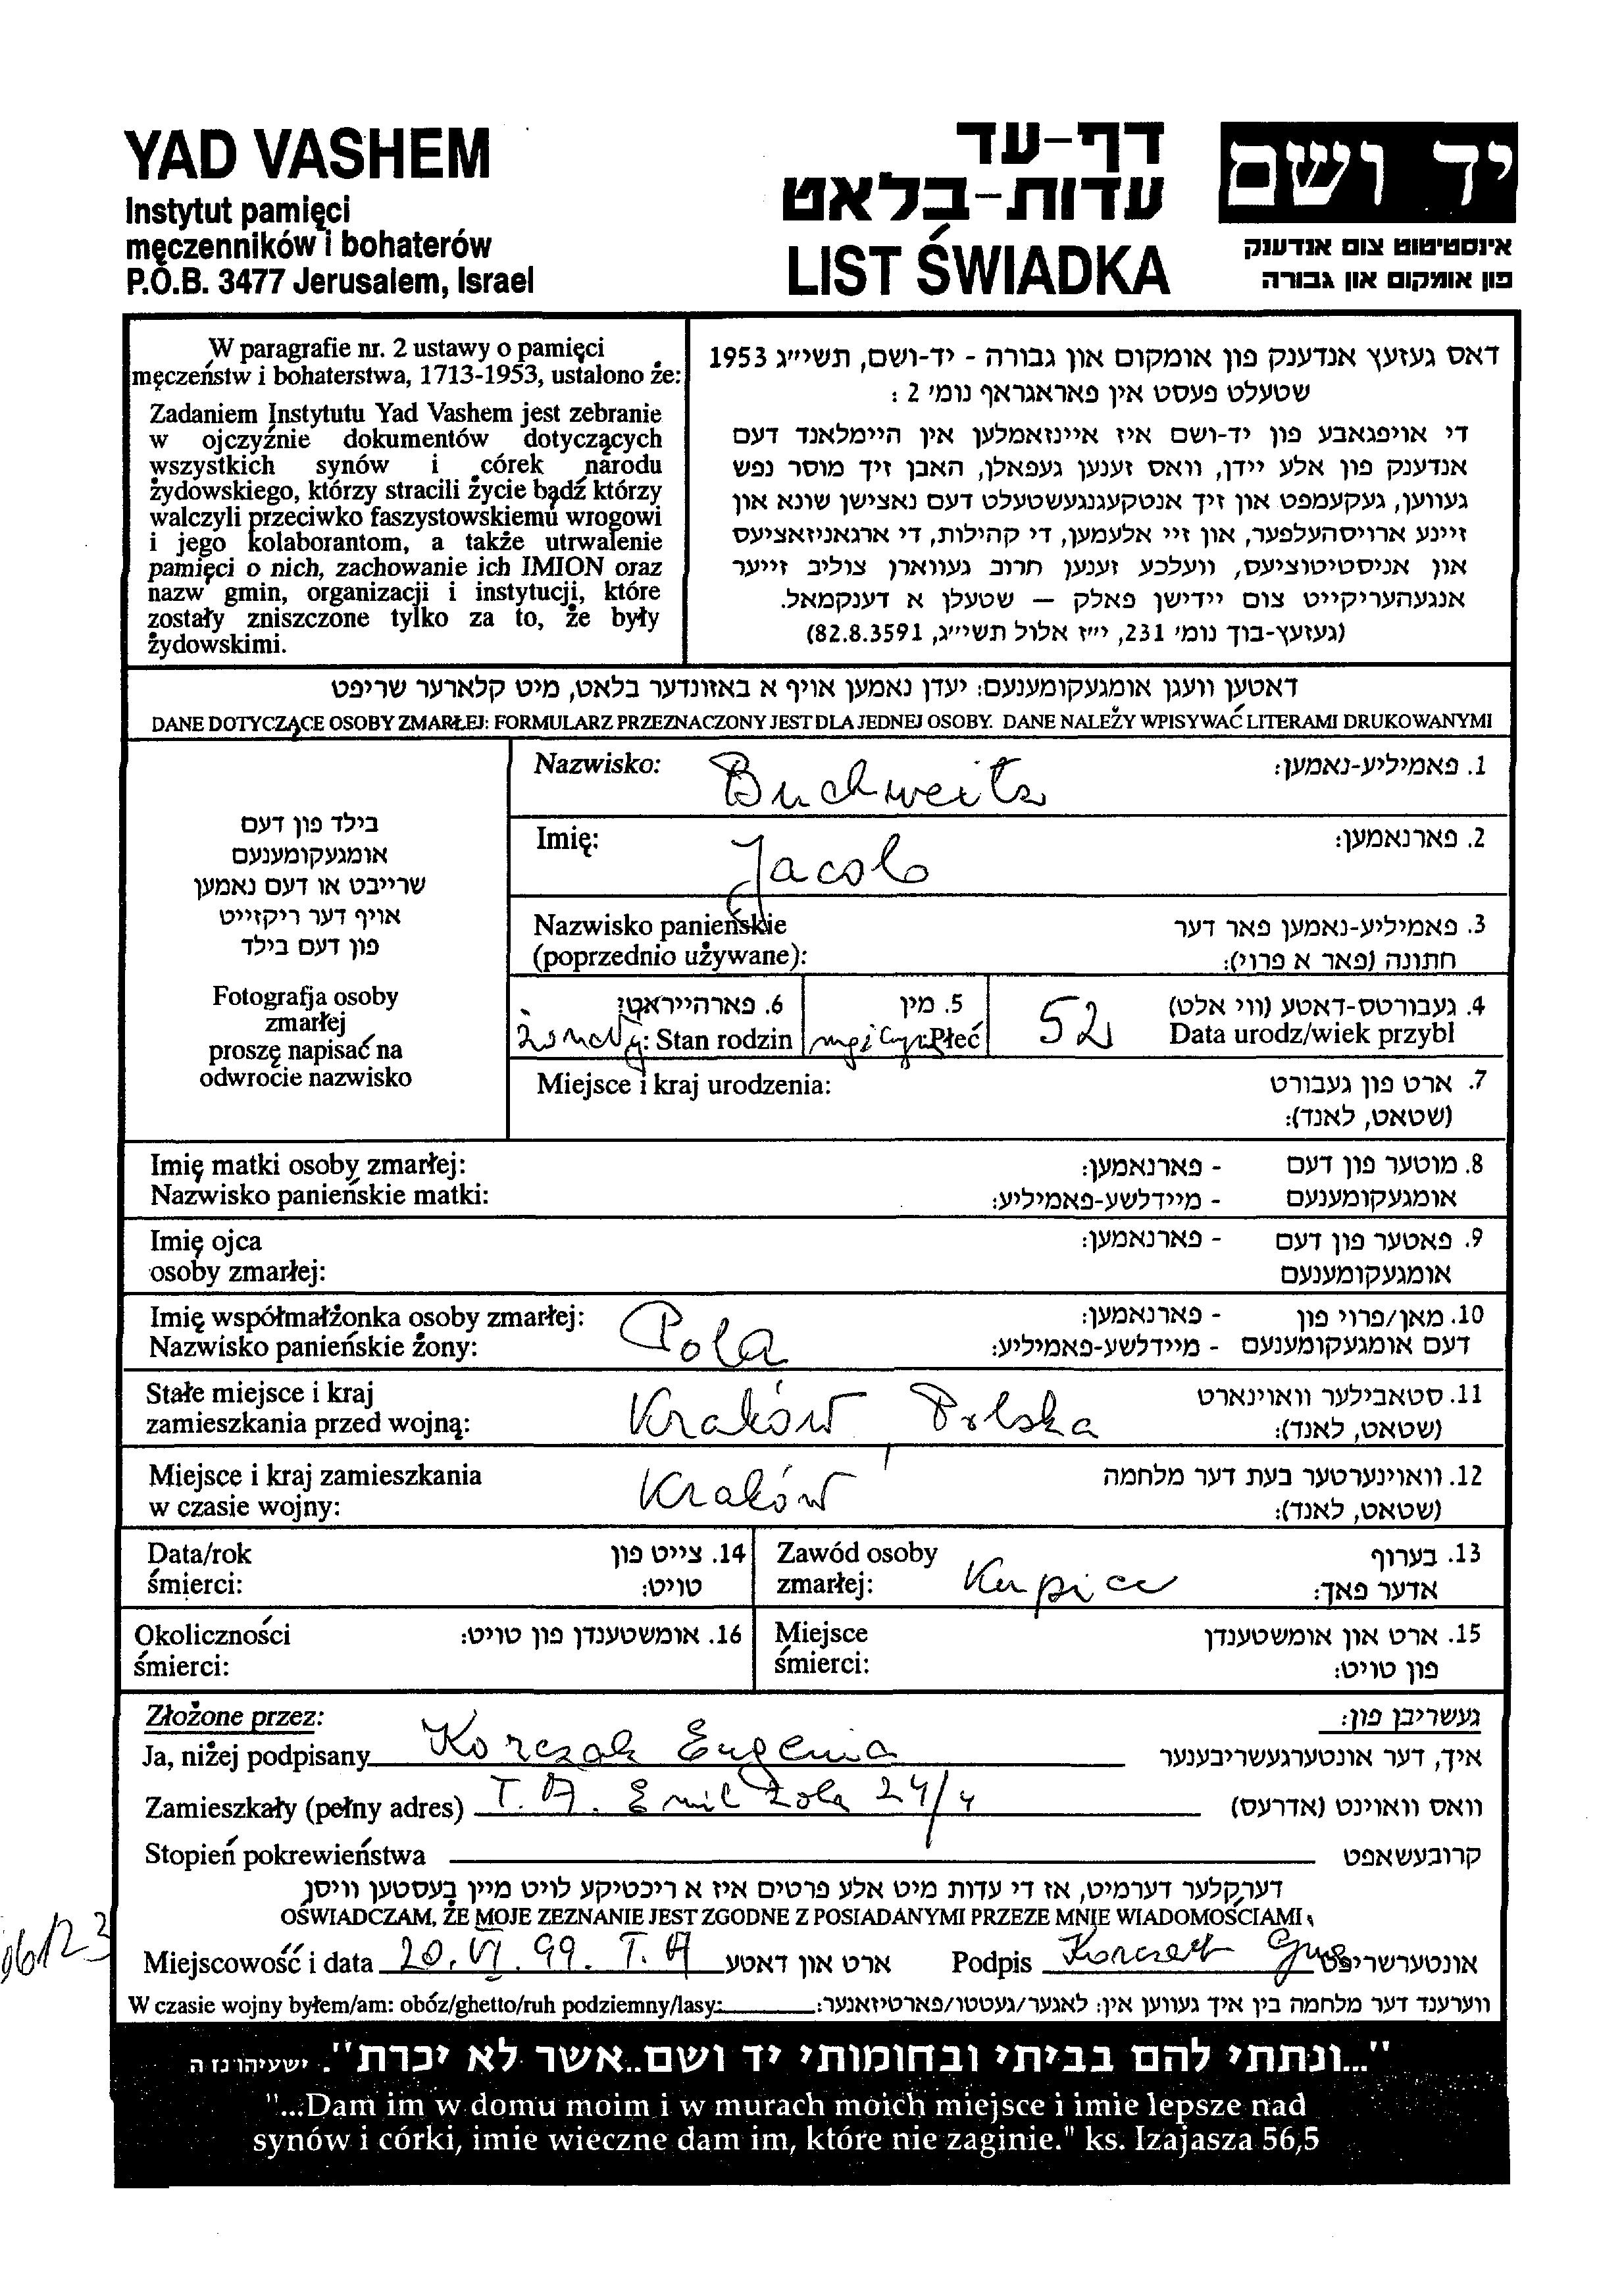 YAD VASHEM
Instytut pamięci
męczenników i bohaterów
P.O.B. 3477 Jerusalem, Israel
דף-עד
עדות-בלאט
LIST ŚWIADKA
יד ושם
אינסטיטוט צום אנדענק
פון אומקום און גבורה
W paragrafie nr. 2 ustawy o pamięci
męczeństw i bohaterstwa, 1713-1953, ustalono że:
Zadaniem Instytutu Yad Vashem jest zebranie
w ojczyźnie dokumentów dotyczących
wszystkich synów i córek narodu
żydowskiego, którzy stracili życie bądź którzy
walczyli przeciwko faszystowskiemu wrogowi
i jego kolaborantom, a także utrwalenie
pamięci o nich, zachowanie ich IMION oraz
nazw gmin, organizacji i instytucji, które
zostały zniszczone tylko za to, że były
żydowskimi.
דאס געזעץ אנדענק פון אומקום און גבורה - יד-ושם, תשי״ג 1953
שטעלט פעסט אין פאראגראף נומ׳ 2 :
די אויפגאבע פון יד-ושם איז איינזאמלען אין היימלאנד דעם
אנדענק פון אלע יידן, וואס זענען געפאלן, האבן זיך מוסר נפש
געווען, געקעמפט און זיך אנטקעגנגעשטעלט דעם נאצישן שונא און
זיינע ארויסהעלפער, און זיי אלעמען, די קהילות, די ארגאניזאציעס
און אניסטיטוציעס, וועלכע זענען חרוב געווארן צוליב זייער
אנגעהעריקייט צום יידישן פאלק – שטעלן א דענקמאל.
(געזעץ-בוך נומ׳ 231, י״ז אלול תשי״ג, 82.8.3591)
דאטען וועגן אומגעקומענעם: יעדן נאמען אויף א באזונדער בלאט, מיט קלארער שריפט
DANE DOTYCZĄCE OSOBY ZMARŁEJ: FORMULARZ PRZEZNACZONY JEST DLA JEDNEJ OSOBY. DANE NALEŻY WPISYWAĆ LITERAMI DRUKOWANYMI
בילד פון דעם
אומגעקומענעם
שרייבט או דעם נאמען
אויף דער ריקזייט
פון דעם בילד
Fotografja osoby
zmarłej
proszę napisać na
odwrocie nazwisko
Nazwisko: Buchweitz 1. פאמיליע-נאמען:
Imię: Jacob 2. פארנאמען:
Nazwisko panieńskie 3. פאמיליע-נאמען פאר דער
(poprzednio używane): חתונה (פאר א פרוי):
6. פארהייראט: 5. מין 4. געבורטס-דאטע (ווי אלט)
żonaty: Stan rodzin Płeć 52 Data urodz/wiek przybl
Miejsce i kraj urodzenia: 7. ארט פון געבורט
(שטאט, לאנד):
Imię matki osoby zmarłej: - פארנאמען: 8. מוטער פון דעם
Nazwisko panieńskie matki: - מיידלשע-פאמיליע: אומגעקומענעם
Imię ojca - פארנאמען: 9. פאטער פון דעם
osoby zmarłej: אומגעקומענעם
Imię współmałżonka osoby zmarłej: Pola - פארנאמען: 10. מאן/פרוי פון
Nazwisko panieńskie żony: - מיידלשע-פאמיליע: דעם אומגעקומענעם
Stałe miejsce i kraj 11. סטאבילער וואוינארט
zamieszkania przed wojną: Kraków, Polska (שטאט, לאנד):
Miejsce i kraj zamieszkania 12. וואוינערטער בעת דער מלחמה
w czasie wojny: Kraków (שטאט, לאנד):
Data/rok 14. צייט פון Zawód osoby 13. בערוף
śmierci: טויט: zmarłej: Kupiec אדער פאך:
Okoliczności 16. אומשטענדן פון טויט: Miejsce 15. ארט און אומשטענדן
śmierci: śmierci: פון טויט:
Złożone przez: געשריבן פון:
Ja, niżej podpisany Korczak Eugenia איך, דער אונטערגעשריבענער
Zamieszkały (pełny adres) T.A. Emil Zola 24/4 וואס וואוינט (אדרעס)
Stopień pokrewieństwa קרובעשאפט
דערקלער דערמיט, אז די עדות מיט אלע פרטים איז א ריכטיקע לויט מיין בעסטען וויסן
OŚWIADCZAM, ŻE MOJE ZEZNANIE JEST ZGODNE Z POSIADANYMI PRZEZE MNIE WIADOMOŚCIAMI
Miejscowość i data 20.VI.99. T.A ארט און דאטע Podpis Korczak אונטערשריפט
W czasie wojny byłem/am: obóz/ghetto/ruh podziemny/lasy: ווערענד דער מלחמה בין איך געווען אין: לאגער/געטטו/פארטיזאנער:
"...ונתתי להם בביתי ובחומותי יד ושם..אשר לא יכרת". ישעיהו נז ה
"...Dam im w domu moim i w murach moich miejsce i imie lepsze nad
synów i córki, imie wieczne dam im, które nie zaginie." ks. Izajasza 56,5